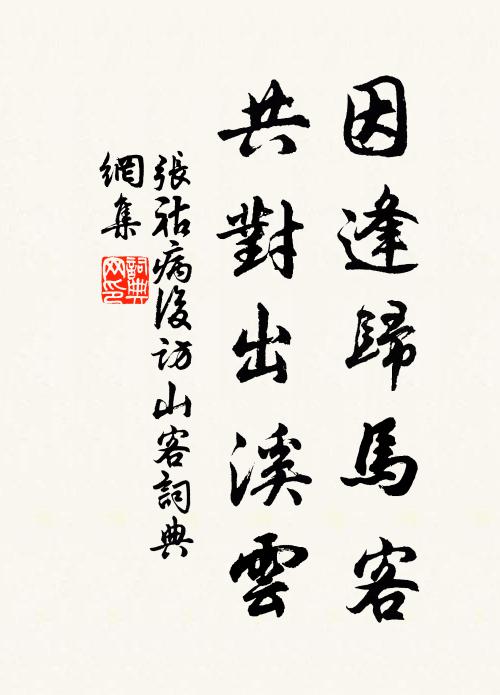 因逢歸馬客
共對出溪雲
張祜病後访山客詞典
網集
詞典
网印